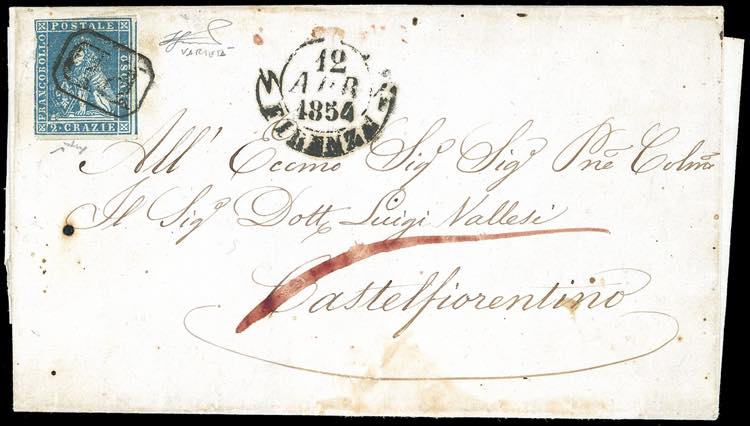 FRANCOBOLLO POSTALE TOSCANO
2. GRAZIE
VARIETÀ
12
APR
1854
FIRENZE
All' Eccmo Sigr. Sigr. Pne Colmo
Il Sigr. Dott. Luigi Vallesi
Castelfiorentino